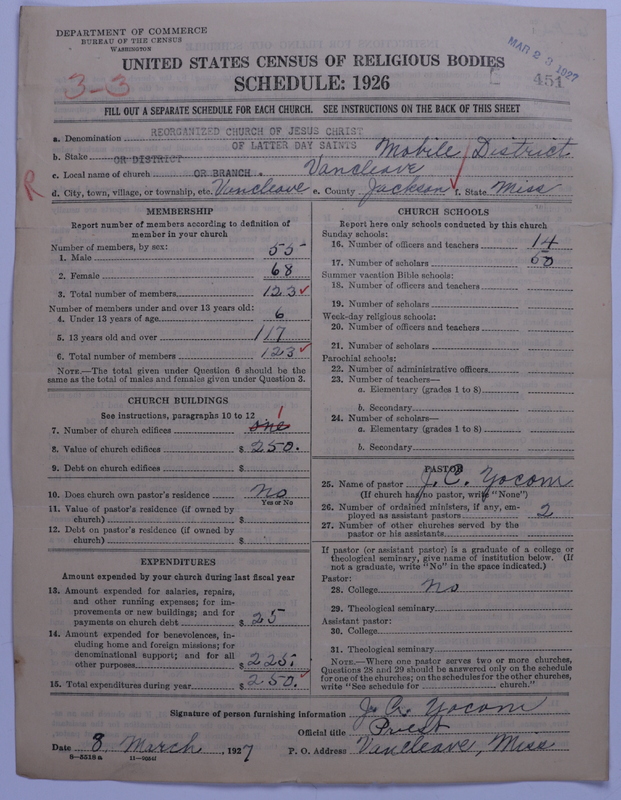 DEPARTMENT OF COMMERCE
BUREAU OF THE CENSUS
WASHINGTON
MAR 23 1927
UNITED STATES CENSUS OF RELIGIOUS BODIES
SCHEDULE: 1926
3-3
451
FILL OUT A SEPARATE SCHEDULE FOR EACH CHURCH. SEE INSTRUCTIONS ON THE BACK OF THIS SHEET
a. Denomination REORGANIZED CHURCH OF JESUS CHRIST
OF LATTER DAY SAINTS
b. Stake OR DISTRICT Mobile District
c. Local name of church OR BRANCH. Vancleave
R
d. City, town, village, or township, etc. Vancleave e. County Jackson f. State Miss
MEMBERSHIP
Report number of members according to definition of
member in your church
Number of members, by sex:
1. Male 55
2. Female 68
3. Total number of members 123 ✓
Number of members under and over 13 years old:
4. Under 13 years of age 6
5. 13 years old and over 117
6. Total number of members 123 ✓
NOTE.—The total given under Question 6 should be
same as the total of males and females given under Question 3.
CHURCH BUILDINGS
See instructions, paragraphs 10 to 12
7. Number of church edifices one 1
8. Value of church edifices $ 250.
9. Debt on church edifices $
10. Does church own pastor's residence No
Yes or No
11. Value of pastor's residence (if owned by
church) $
12. Debt on pastor's residence (if owned by
church) $
EXPENDITURES
Amount expended by your church during last fiscal year
13. Amount expended for salaries, repairs,
and other running expenses; for im-
provements or new buildings; and for
payments on church debt $ 25
14. Amount expended for benevolences, in-
cluding home and foreign missions; for
denominational support; and for all
other purposes $ 225.
15. Total expenditures during year $ 250. ✓
CHURCH SCHOOLS
Report here only schools conducted by this church
Sunday schools:
16. Number of officers and teachers 14
17. Number of scholars 60
Summer vacation Bible schools:
18. Number of officers and teachers
19. Number of scholars
Week-day religious schools:
20. Number of officers and teachers
21. Number of scholars
Parochial schools:
22. Number of administrative officers
23. Number of teachers—
a. Elementary (grades 1 to 8)
b. Secondary
24. Number of scholars—
a. Elementary (grades 1 to 8)
b. Secondary
PASTOR
25. Name of pastor J. C. Yocom
(If church has no pastor, write "None")
26. Number of ordained ministers, if any, em-
ployed as assistant pastors 2
27. Number of other churches served by the
pastor or his assistants
If pastor (or assistant pastor) is a graduate of a college or
theological seminary, give name of institution below. (If
not a graduate, write "No" in the space indicated.)
Pastor:
28. College No
29. Theological seminary
Assistant pastor:
30. College
31. Theological seminary
NOTE.—Where one pastor serves two or more churches,
Questions 28 and 29 should be answered only on the schedule
for one of the churches; on the schedules for the other churches,
write "See schedule for church."
Signature of person furnishing information J. C. Yocom
Official title Priest
Date 8 March, 1927 P. O. Address Vancleave, Miss
8—5518a